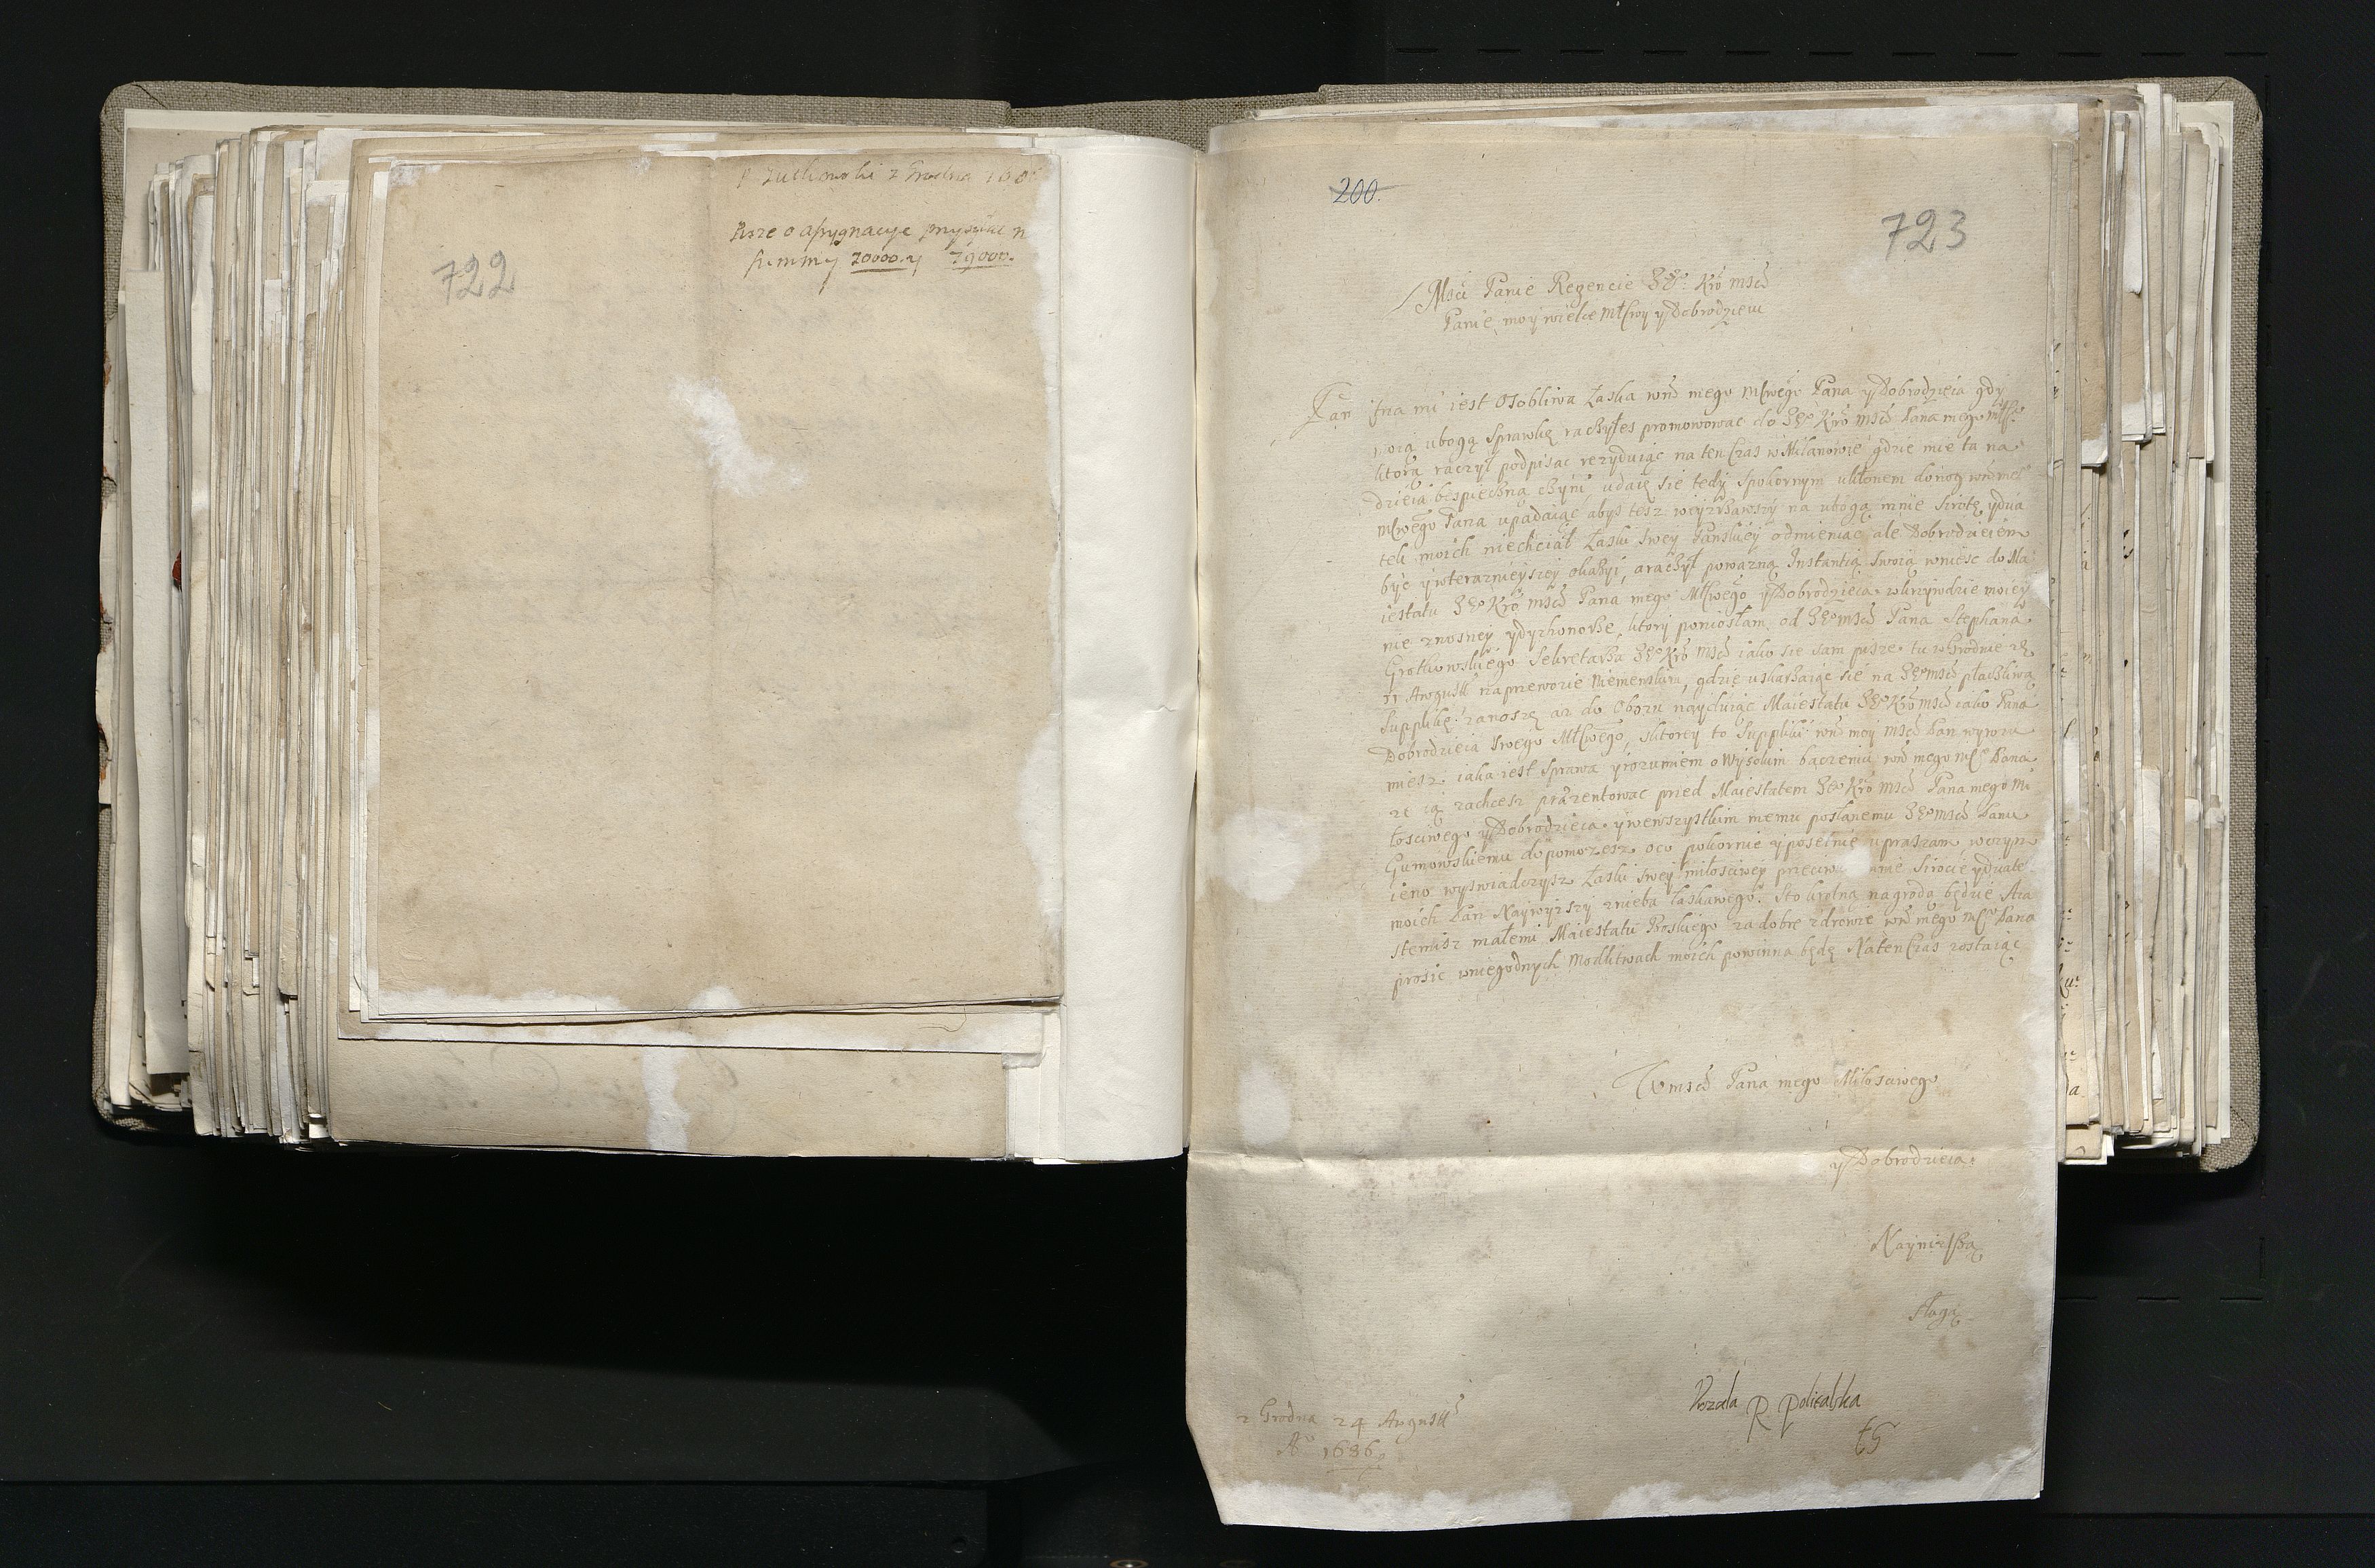 P Zuchowski z Grodna
Pisze o assygnacye
summy 20000. y 29000.
722
200.
723
Msci Panie Regencie JE° Kro Mscı
Panie moy wielce Młwy y Dobrodzieiu
mi iest Osobliwa Łaska wm mego Młwego Pana y Dobrodzieia gdy
ubogą Sprawkę raczyłes promowowac do JE° Kro Mscı Pana mego
ktorą raczył podpisac rezyduiąc na ten Czas w Milanowie gdzie mie ta na
dzieia bespieczną czyni udaię się tedy Spokornym ukłonem do nog wm me°
Młwego Pana upadaiąc abys tesz weyzrzawszy na ubogą mnie Sirotę y dzia
tek moich niechciał Łaski Swey Panskiey odmieniac ale Dobrodzieiem
być y wteraznieyszey okazyi, a raczył powazną Instantią Swoią wniesc do Ma
iestatu JE° Kro Mscı Pana mego Młwego y Dobrodzieia. wkrzywdzie moiey
nie znosney y dyzhonorze, ktory poniosłam od JE° Mscı Pana Stephana
Grotkowskiego Sekretarza JE° Kro Mscı iako się sam pisze. tu w Grodnie
11 Augusti na przewozie Niemenskim, gdzie uskarzaiąc się na JE° Mscı płaczliwą
Supplikę zanoszę az do Obozu nayduiąc Maiestatu JE° Kro Mscı iako Pana
Dobrodzieia Swego Młwego, sktorey to Suppliki wm moy Mscı Pan wyrozu
miesz. iaka iest Sprawa y rozumiem o Wysokim baczeniu wm mego Mł° Pana
ze ią zachcesz przezentowac przed Maiestatem JE° Kro Mscı Pana mego Mi
łosciwego y Dobrodzieia. y wewszystkim memu posłanemu JE° Mscı Panu
Gumowskiemu dopomozesz oco pokornie y poselnie upraszam wczym
ieno wyswiadczysz Łaski Swey miłosciwey przeciwko mnie Sirocie y dziate
moich Pan Naywyzszy znieba łaskawego. Sto krotną nagrodą będzie Aia
stemisz małemi Maiestatu Boskiego za dobre zdrowie wm mego Mł° Pana
prosic wniegodnych Modlitwach moich powinna będę Naten Czas zostaiąc
Wmscı Pana mego Miłosciwego
y Dobrodzieia.
Naynizszą
sługą
R. Policalska
z Grodna 24 Augusti
A° 1686